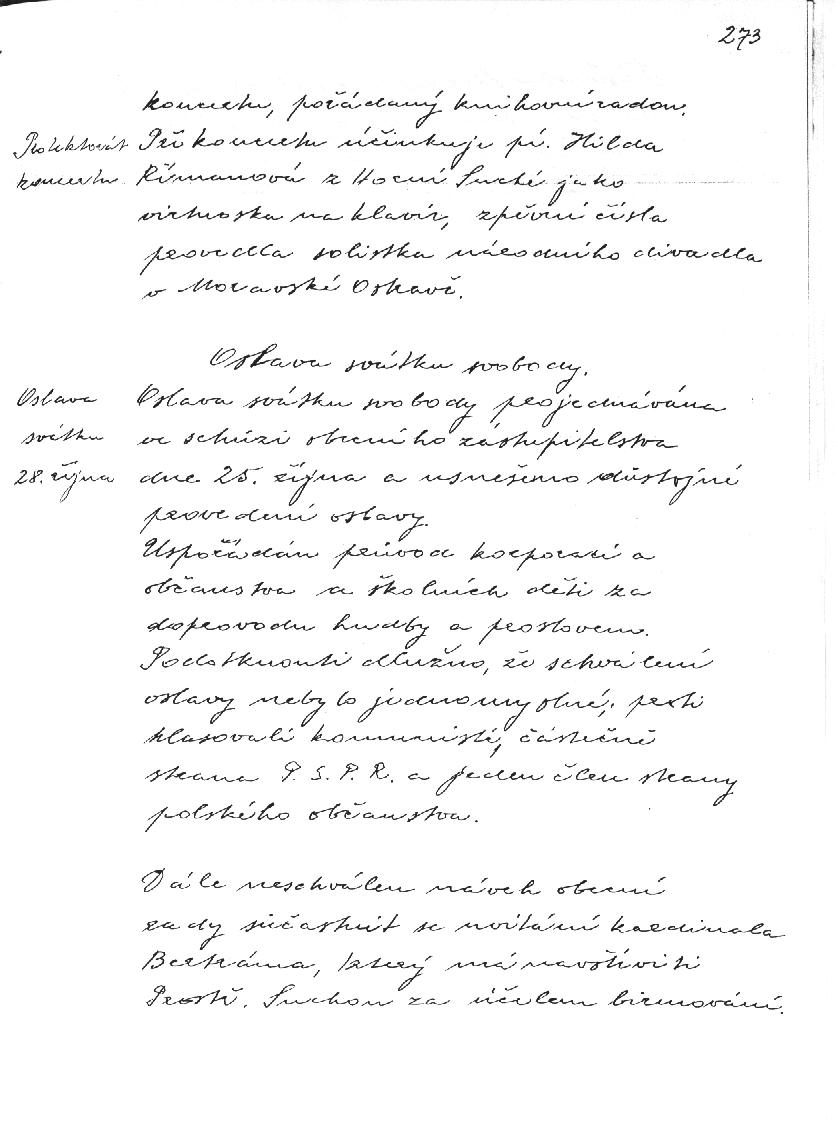 273
koncertu, pořádaný knihovní radou.
Protektorát
koncertu.
Při koncertu účinkuje pí. Hilda
Římanová z Horní Suché jako
virtuoska na klavír, zpěvní čísla
provedla solistka národního divadla
v Moravské Ostravě.
Oslava svátku svobody.
Oslava
svátku
28. října
Oslava svátku svobody projednávána
ve schůzi obecního zastupitelstva
dne 25. října a usnešeno důstojné
provedení oslavy.
Uspořádán průvod korporací a
občanstva a školních dětí za
doprovodu hudby a proslovem.
Podotknouti dlužno, že schválení
oslavy nebylo jednomyslné; proti
hlasovali komunisti, částečně
strana P. S. P. R. a jeden člen strany
polského občanstva.
Dále neschválen návrh obecní
rady súčastnit se uvítání kardinala
Bertráma, který má navštíviti
Prostř. Suchou za účelem biřmování.